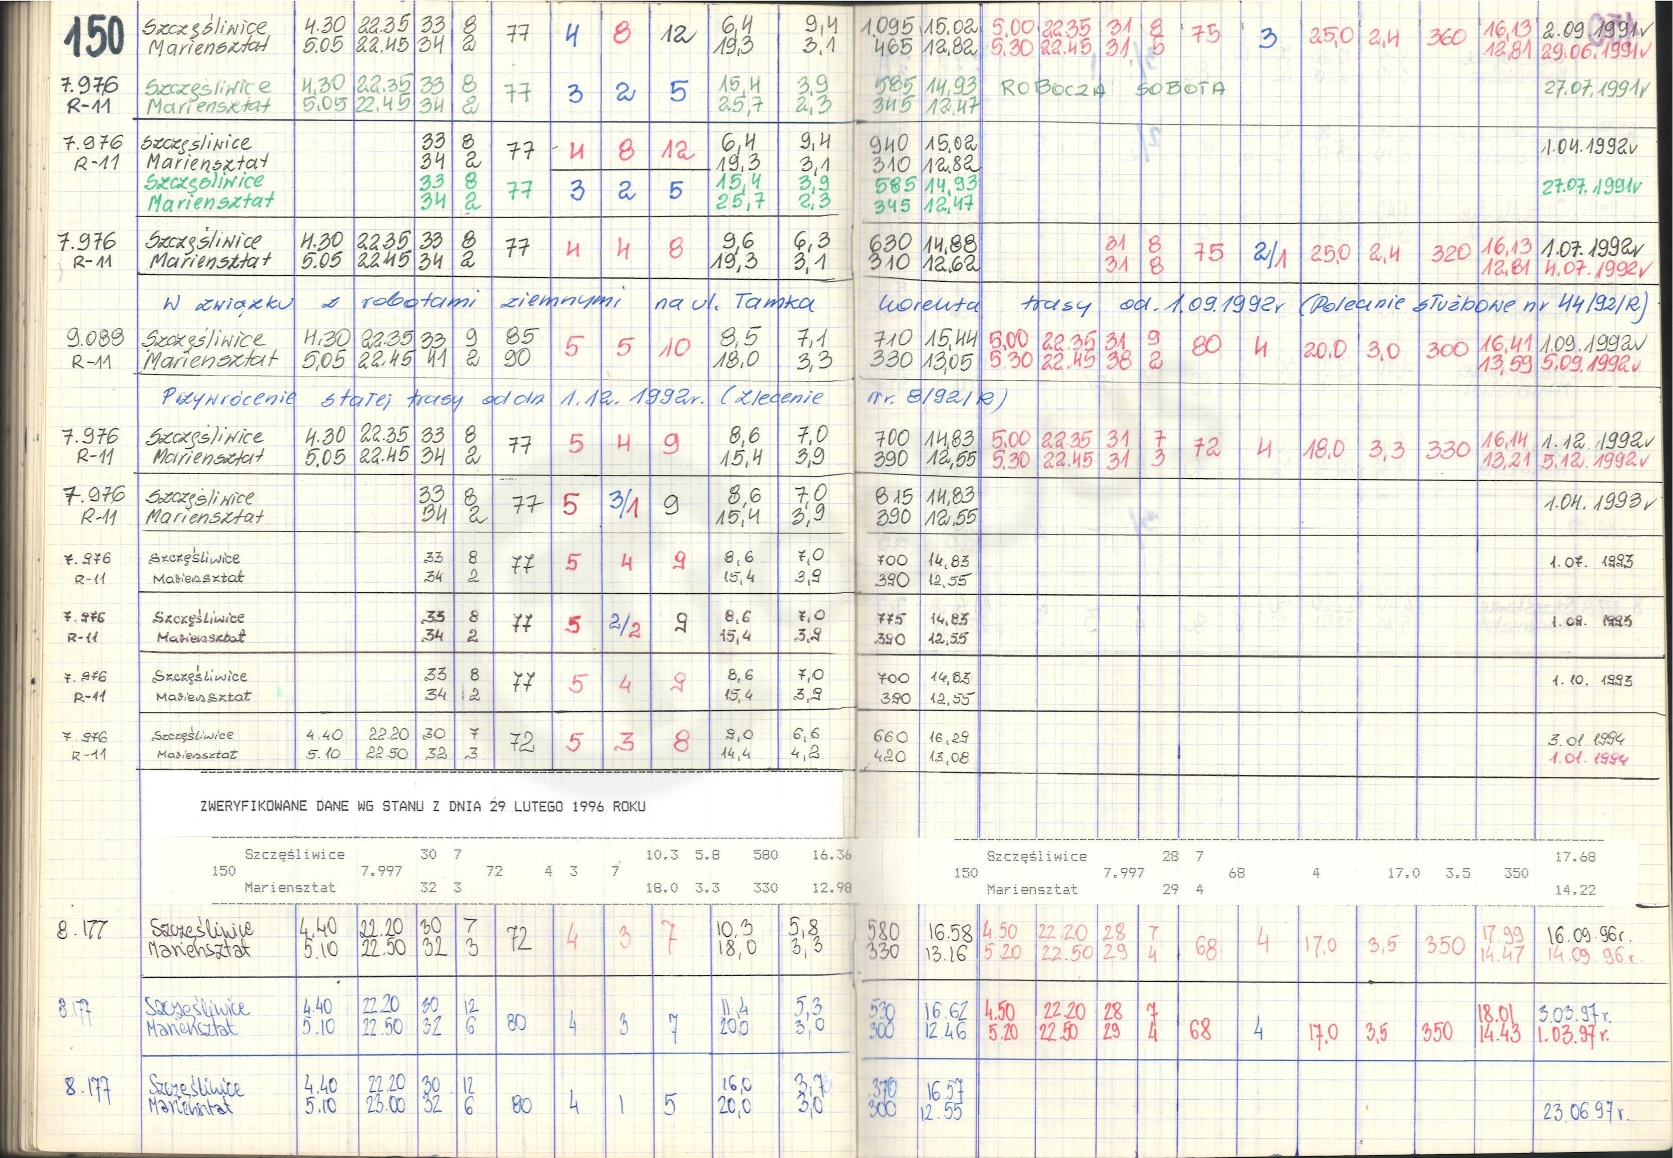 150 Szczęśliwice 4.30 22.35 33 8 77 4 8 12 6,4 9,4 1.095 15.02 5.00 22.35 31 8 75 3 25,0 2,4 360 16,13 2.09.1991r
Mariensztat 5.05 22.45 34 2 19,3 3,1 465 12,82 5.30 22.45 31 5 12,81 29.06.1991r
7.976 Szczęśliwice 4,30 22.35 33 8 77 3 2 5 15,4 3,9 585 14,93 ROBOCZA SOBOTA 27.07.1991r
R-11 Mariensztat 5,05 22.45 34 2 25,7 2,3 345 12,47
7.976 Szczęśliwice 33 8 77 4 8 12 6,4 9,4 940 15,02 1.04.1992r
R-11 Mariensztat 34 2 19,3 3,1 310 12,82
Szczęśliwice 33 8 77 3 2 5 15,4 3,9 585 14,93 27.07.1991r
Mariensztat 34 2 25,7 2,3 345 12,47
7.976 Szczęśliwice 4.30 22.35 33 8 77 4 4 8 9,6 6,3 630 14,88 31 8 75 2/1 25,0 2,4 320 16,13 1.07.1992r
R-11 Mariensztat 5.05 22.45 34 2 19,3 3,1 310 12,62 31 8 12,81 4.07.1992r
W związku z robotami ziemnymi na ul. Tamka korekta trasy od 1.09.1992r (Polecenie służbowe nr 44/92/R)
9.088 Szczęśliwice 4.30 22.35 33 9 85 5 5 10 8,5 7,1 710 15,44 5,00 22.35 31 9 80 4 20,0 3,0 300 16,41 1.09.1992r
R-11 Mariensztat 5,05 22.45 41 2 90 18,0 3,3 330 13,05 5.30 22.45 38 2 13,59 5.09.1992r
Przywrócenie stałej trasy od dn 1.12.1992r. (zlecenie nr. 8/92/R)
7.976 Szczęśliwice 4.30 22.35 33 8 77 5 4 9 8,6 7,0 700 14,83 5.00 22.35 31 7 72 4 18,0 3,3 330 16,14 1.12.1992r
R-11 Mariensztat 5,05 22.45 34 2 15,4 3,9 390 12,55 5.30 22.45 31 3 13,21 5.12.1992r
7.976 Szczęśliwice 33 8 77 5 3/1 9 8,6 7,0 815 14,83 1.04.1993r
R-11 Mariensztat 34 2 15,4 3,9 390 12,55
7.976 Szczęśliwice 33 8 77 5 4 9 8,6 7,0 700 14,83 1.07.1993
R-11 Mariensztat 34 2 15,4 3,9 390 12,55
7.976 Szczęśliwice 33 8 77 5 2/2 9 8,6 7,0 775 14,83 1.09.1993
R-11 Mariensztat 34 2 15,4 3,9 390 12,55
7.976 Szczęśliwice 33 8 77 5 4 9 8,6 7,0 700 14,83 1.10.1993
R-11 Mariensztat 34 2 15,4 3,9 390 12,55
7.976 Szczęśliwice 4.40 22.20 30 7 72 5 3 8 9,0 6,6 660 16,29 3.01.1994
R-11 Mariensztat 5.10 22.50 32 3 14,4 4,2 420 13,08 1.01.1994
ZWERYFIKOWANE DANE WG STANU Z DNIA 29 LUTEGO 1996 ROKU
Szczęśliwice 30 7 10.3 5.8 580 16.36 Szczęśliwice 28 7 17.68
150 7.997 72 4 3 7 150 7.997 68 4 17.0 3.5 350
Mariensztat 32 3 18.0 3.3 330 12.98 Mariensztat 29 4 14.22
8.177 Szczęśliwice 4.40 22.20 30 7 72 4 3 7 10,3 5,8 580 16.58 4.50 22.20 28 7 68 4 17,0 3,5 350 17.99 16.09.96r.
Mariensztat 5.10 22.50 32 3 18,0 3,3 330 13.16 5.20 22.50 29 4 14.47 14.09.96r.
8.177 Szczęśliwice 4.40 22.20 30 12 80 4 3 7 11,4 5,3 530 16.62 4.50 22.20 28 7 68 4 17,0 3,5 350 18.01 3.03.97r.
Mariensztat 5.10 22.50 32 6 20,0 3,0 300 12.46 5.20 22.50 29 4 14.43 1.03.97r.
8.177 Szczęśliwice 4.40 22.20 30 12 80 4 1 5 16,0 3,7 370 16.57
Mariensztat 5.10 23.00 32 6 20,0 3,0 300 12.55 23.06.97r.